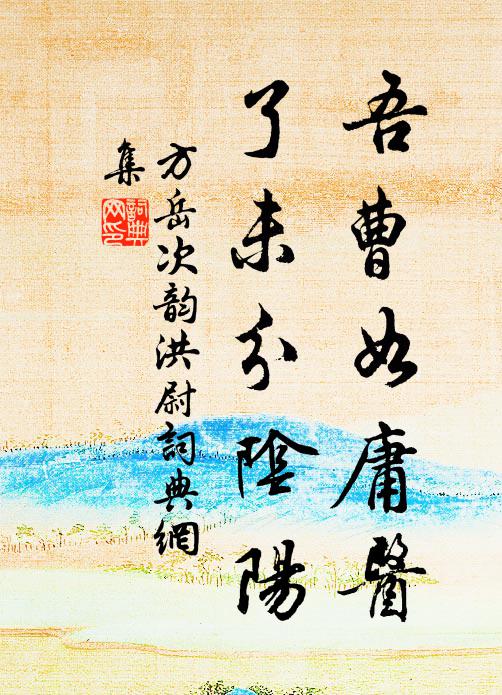 吾曹如庸醫
了未分陰陽
方岳次韵洪尉詞典網
集
詞典
网印